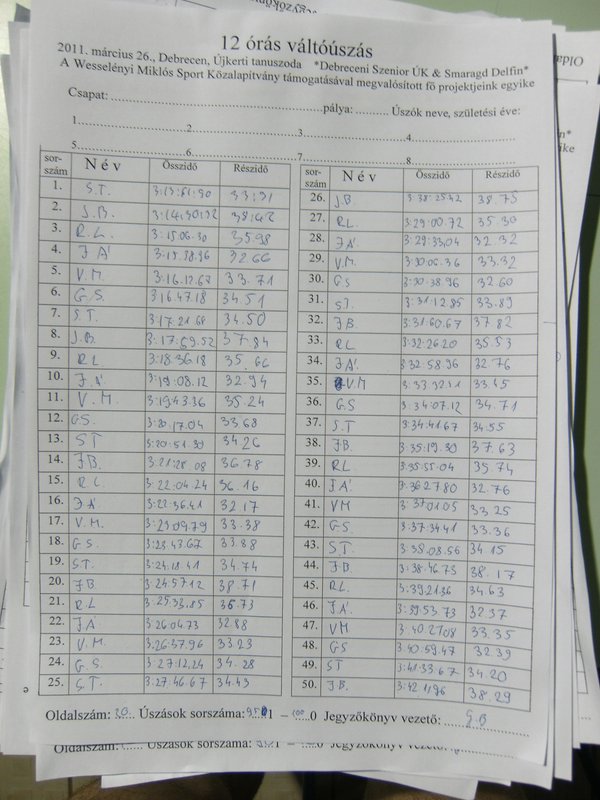 12 órás váltóúszás
2011. március 26., Debrecen, Újkerti tanuszoda *Debreceni Szenior ÚK & Smaragd Delfin*
A Wesselényi Miklós Sport Közalapítvány támogatásával megvalósított fő projektjeink egyike
Csapat: pálya: Úszók neve, születési éve:
1. 2. 3. 4.
5. 6. 7. 8.
sor-szám Név Összidő Részidő
1. S.T. 33:31
2. J.B. 38:42
3. R.L. 3:15:06.30 35.98
4. J.Á. 3:15.38.96 32.66
5. V.M. 3:16.12.67 33.71
6. G.S. 3:16 47.18 34.51
7. S.T. 3:17.21.68 34.50
8. J.B. 3:17.59.52 37.84
9. RL 3:18.36.18 35.66
10. J.Á. 3:19.08.12 32.94
11. V.M. 3:19.43.36 35.24
12. G.S. 3:20.17.04 33.68
13. ST 3:20.51.30 34.26
14. J.B. 3:21:28.08 36.78
15. R.L. 3:22:04.24 36.16
16. J.Á. 3:22:36.41 32.17
17. V.M. 3:23:09.79 33.38
18. G.S. 3:23 43.67 33.88
19. ST. 3:24.18.41 34.74
20. JB 3 24.57.12 38.71
21. R.L 3 25.33.85 36.73
22. J.A 3:26:04.73 32.88
23. V.M. 3.26.37.96 33.23
24. G.S. 3:27.12.24 34.28
25. S.T. 3.27.46.67 34.43
sor-szám Név Összidő Részidő
26. J.B. 3:38:25.42 38.75
27. RL. 3:29:00.72 35.30
28. JÁ. 3:29:33.04 32.32
29. V.M. 3:30.06.36 33.32
30. GS 3:30.38.96 32.60
31. ST. 3:31:12.85 33.89
32. J.B. 3:31:60.67 37.82
33. RL 3:32:26.20 35.53
34. J.Á. 3 32:58.96 32.76
35. V.M 33.45
36. G.S 3:34:07.12 34.71
37. S.T 3:34:41.67 34.55
38. J.B. 3:35:19.30 37.63
39. RL 3:35:55.04 35.74
40. J.Á. 3:36 27.80 32.76
41. VM 3:37 01.05 33.25
42. G.S. 3:37.34.41 33.36
43. S.T. 3:38.08.56 34.15
44. J.B. 3:38.46.73 38.17
45. RL. 3:39.21.36 34.63
46. J.Á. 3:39.53.73 32.37
47. VM 3 40.27.08 33.35
48. GS 3:40.59.47 32.39
49. ST 3:41.33.67 34.20
50. J.B. 3:42 11.96 38.29
Oldalszám: Úszások sorszáma: 1 – 0 Jegyzőkönyv vezető: G.B
Oldalszám: Úszások sorszáma: 1 – 0 Jegyzőkönyv vezető: